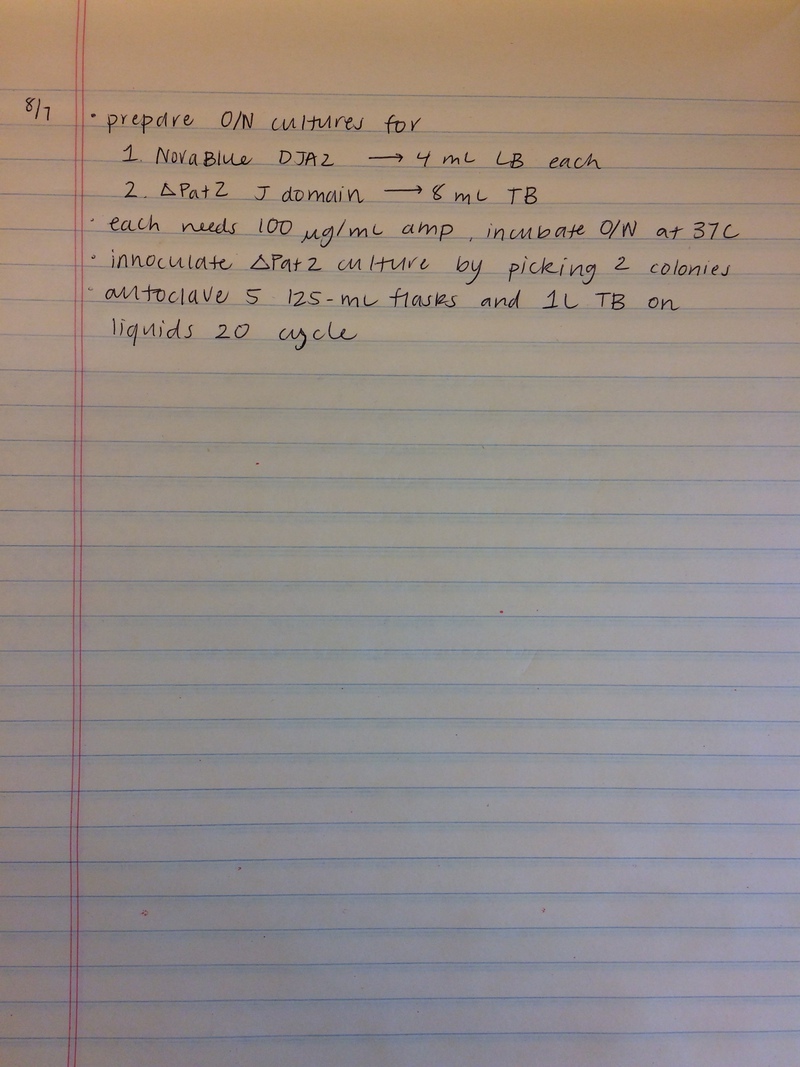 8/7 · prepare O/N cultures for
1. NovaBlue DJA2 → 4 mL LB each
2. ΔPat2 J domain → 8 mL TB
· each needs 100 μg/mL amp, incubate O/N at 37C
· innoculate ΔPat2 culture by picking 2 colonies
· autoclave 5 125-mL flasks and 1L TB on
liquids 20 cycle